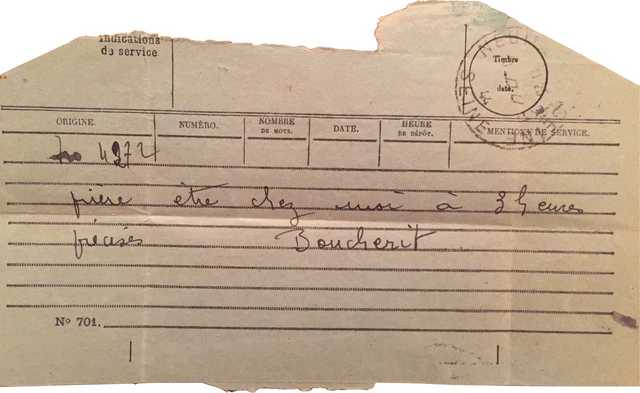 Indications
de service
Timbre
à
date.
SEINE
ORIGINE. NUMÉRO. NOMBRE DE MOTS. DATE. HEURE DE DÉPÔT. MENTIONS DE SERVICE.
4272
prière être chez moi à 3 heures
précises Boucherit
Nº 701.